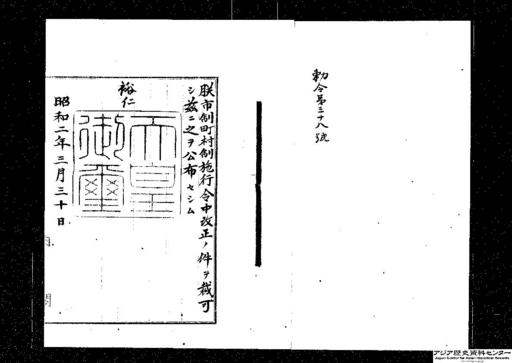 勅令第三十八號
朕市制町村制施行令中改正ノ件ヲ裁可
シ茲ニ之ヲ公布セシム
裕仁
天皇
御璽
昭和二年三月三十日
内閣
アジア歴史資料センター
Japan Center for Asian Historical Records